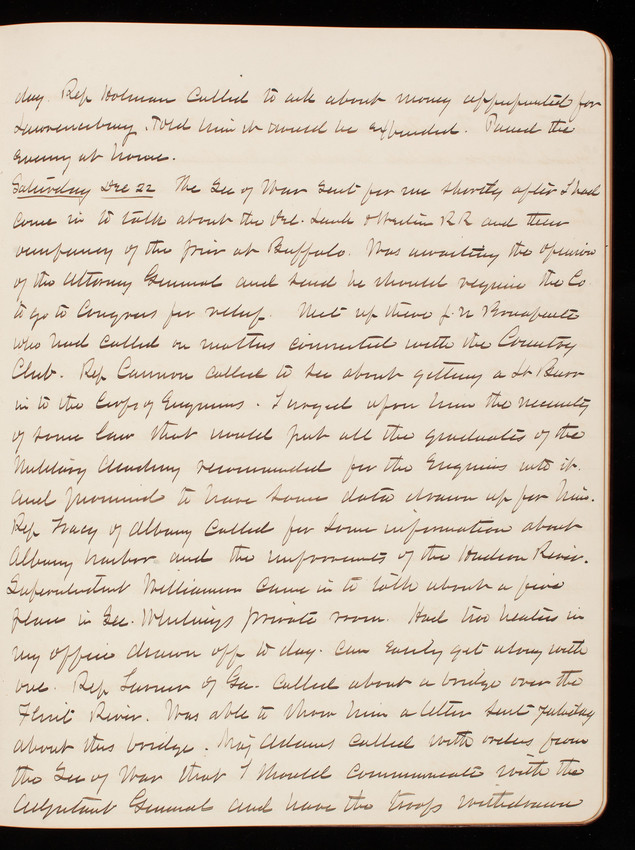 day. Rep Holman called to ask about money appropriated for
Lawrenceburg. Told him it would be expended. Passed the
evening at home.
Saturday Dec 22 The Sec of War sent for me shortly after I had
come in to talk about the Del. Lack & Western RR and their
occupancy of the pier at Buffalo. Was awaiting the opinion
of the Attorney General and said he should require the Co.
to go to Congress for relief. Met up there Bonaparte
who had called on matters connected with the Country
Club. Rep Cannon called to see about getting a Lt Burr
in to the Corps of Engineers. I urged upon him the necessity
of some law that would put all the graduates of the
Military Academy recommended for the Engineers into it
and promised to have some data drawn up for him.
Rep Tracy of Albany called for some information about
Albany harbor and the improvements of the Hudson River.
Superintendent Williamson came in to talk about a fire
place in Sec. Whitney's private room. Had two heaters in
my office drawn off to day. Can easily get along with
one. Rep Turner of Ga. called about a bridge over the
Flint River. Was able to show him a letter sent yesterday
about this bridge. Maj Adams called with orders from
the Sec of War that I should communicate with the
Adjutant General and have the troops withdrawn